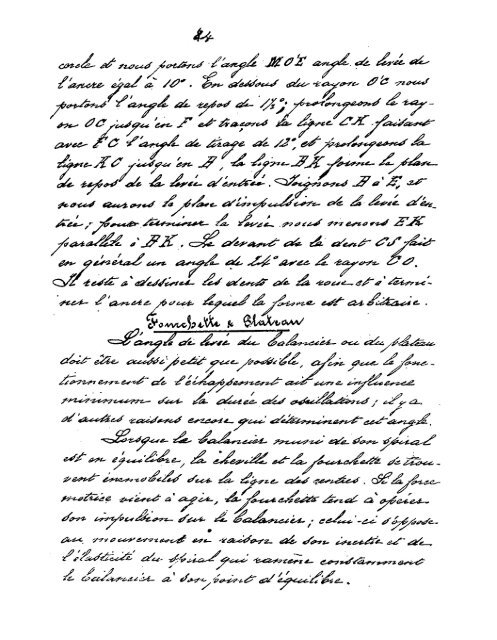 24
cercle et nous portons l'angle MO'E angle de levée de
l'ancre égal à 10°. En dessous du rayon O'C nous
portons l'angle de repos de 1½°; prolongeons le ray-
on OC jusqu'en F et traçons la ligne CK faisant
avec FC l'angle de tirage de 12°, et prolongeons la
ligne KC jusqu'en H, la ligne HK forme le plan
de repos de la levée d'entrée. Joignons H à E, et
nous aurons le plan d'impulsion de la levée d'en-
trée; pour terminer la levée nous menons EK
parallèle à HK. Le devant de la dent CS fait
en général un angle de 24° avec le rayon CO.
Il reste à dessiner les dents de la roue et à termi-
ner l'ancre pour lequel la forme est arbitraire.
Fourchette & Plateau
L'angle de levée du balancier ou du plateau
doit être aussi petit que possible, afin que le fonc-
tionnement de l'échappement ait une influence
minimum sur la durée des oscillations; il y a
d'autres raisons encore qui déterminent cet angle.
Lorsque le balancier muni de son spiral
est en équilibre, la cheville et la fourchette se trou-
vent immobiles sur la ligne des centres. Si la force
motrice vient à agir, la fourchette tend à opérer
son impulsion sur le balancier; celui-ci s'oppose
au mouvement en raison de son inertie et de
l'élasticité du spiral qui ramène constamment
le balancier à son point d'équilibre.